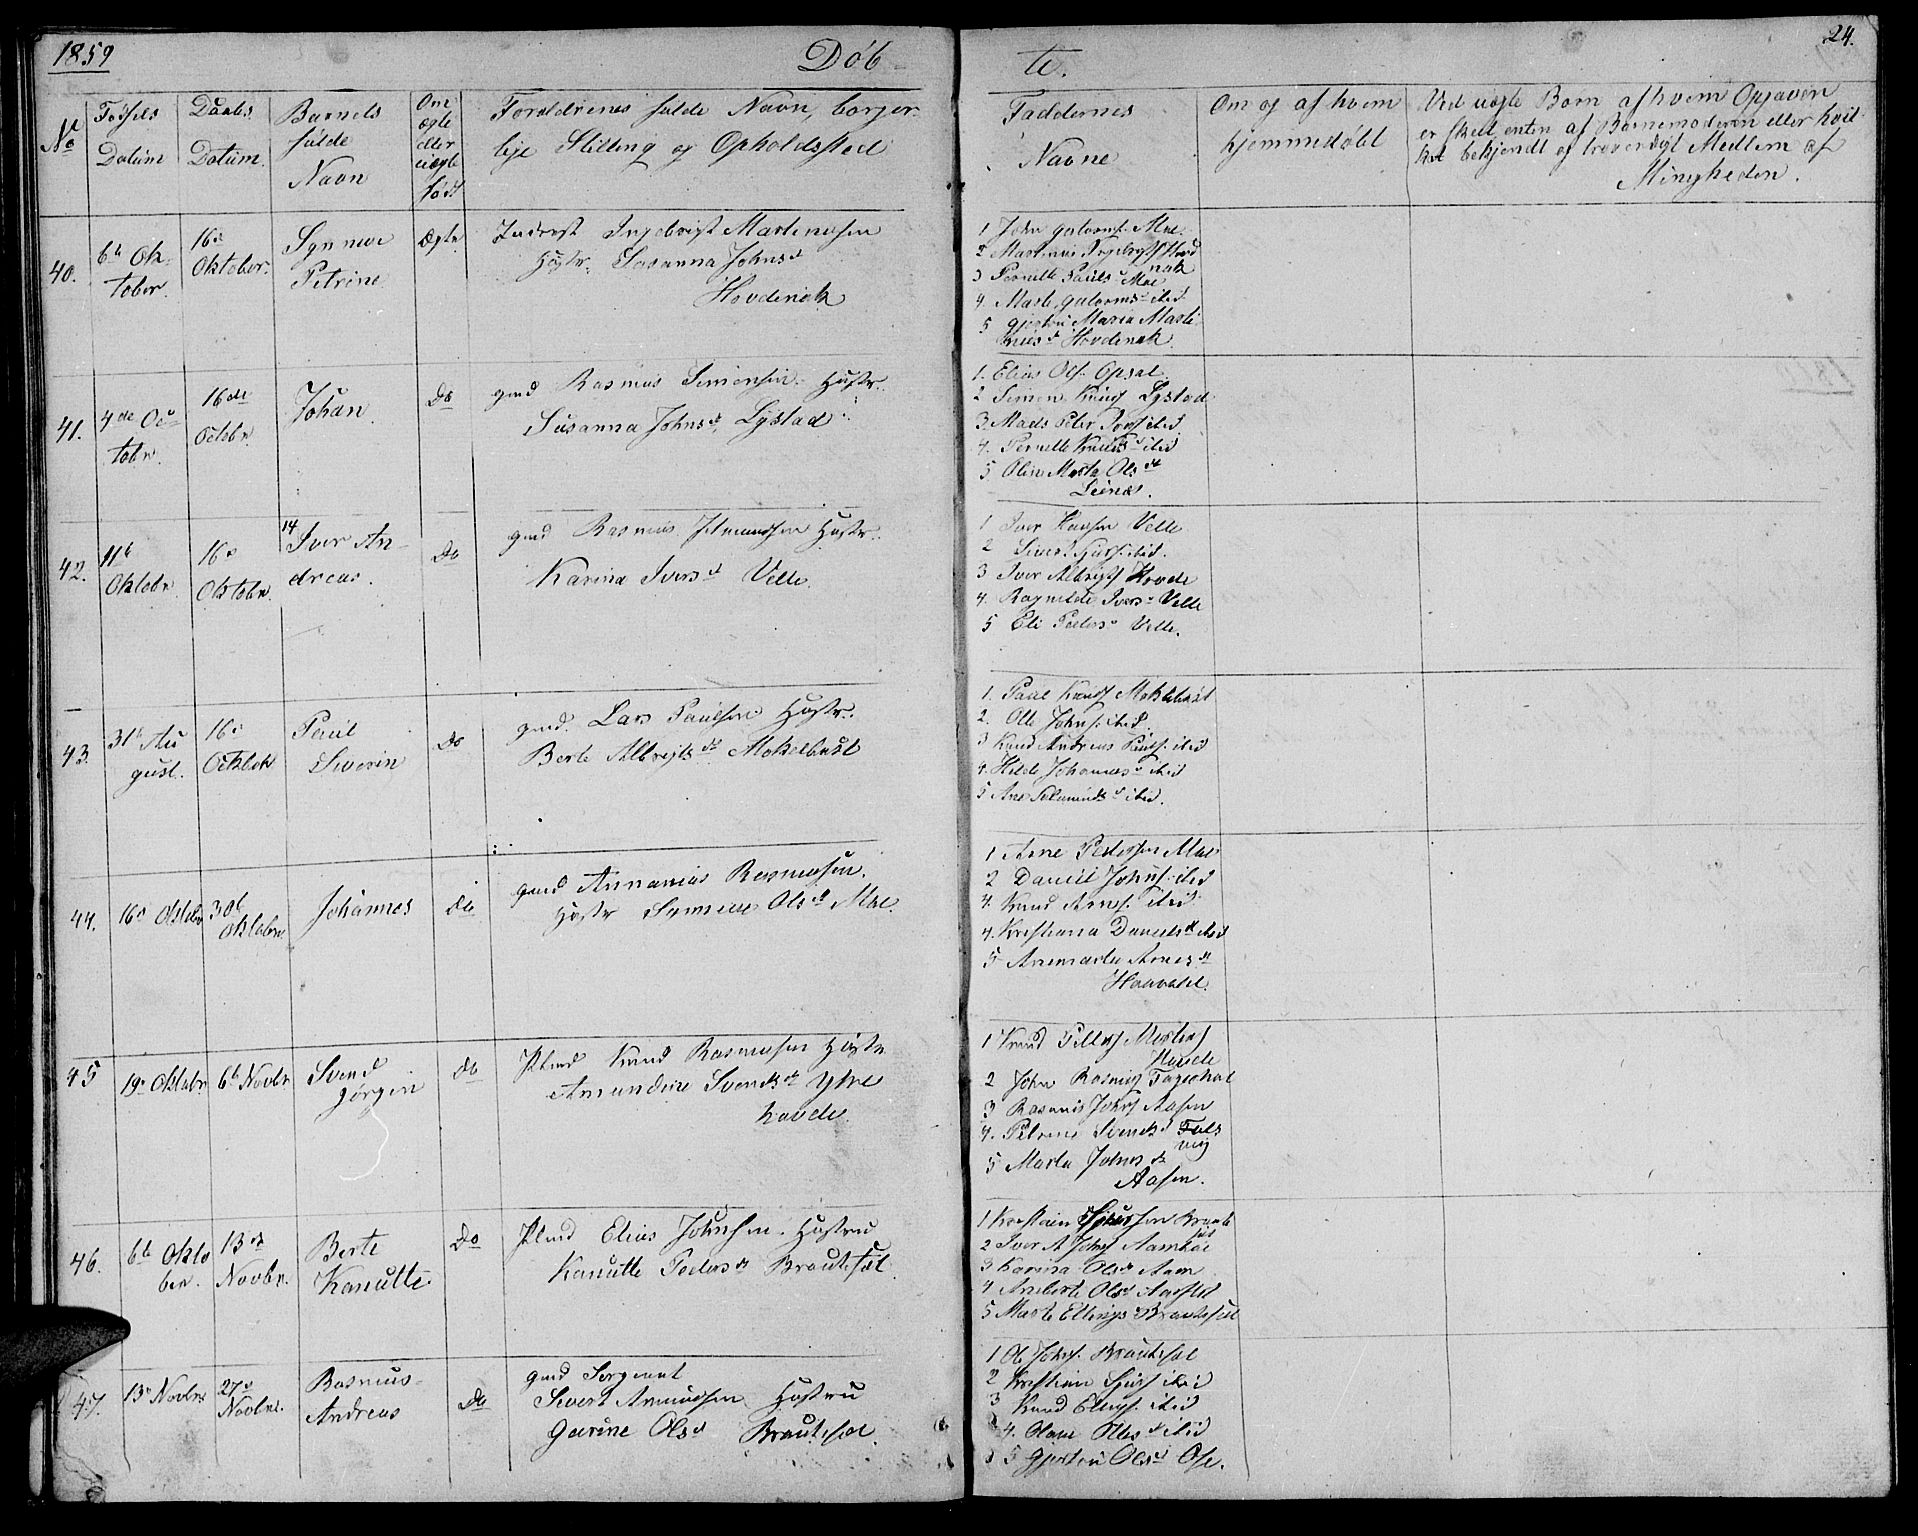 1859
Döb-
te.
24.
No
Födsels
Datum
Daabs
Datum.
Barnets
fulde
Navn
Om
ægte
eller
uægte
född
Foreldrenes fulde Navn, borger-
lige Stilling og Opholdssted
Faddernes
Navne
Om og af hvem
hjemmedöbt
Ved uægte Børn af hvem Opgaven
er skeet enten af Barnemoderen eller hvil
ket bekjendt og troværdigt Medlem af
Menigheden.
40.
6te Ok-
tober.
16de
Oktober.
Synneve
Petrine
Ægte
Inderst Ingebrigt Martinusen
Hustr. Susanna Johnsd
Hovdenak
1 John Moe.
2 Martinus Ingebrigts Hovd
nak
3 Pernille Pauls d Moe
4. Marte ibid
5 Gjertru Maria Marti
nus d Hovdenak
41.
4de Oc-
tober.
16de
Octobr.
Johan
Do
gmd Rasmus Simensen Hustr.
Susanna Johnsd. Lystad
1. Elias Ols. Opsal.
2 Simen Knuds Lystad
3. Mads Peter ibid
4. Pernille Knuds d ibid
5 Olin Marta Olsdt
42.
11te
Oktobr.
16de
Oktobr.
14
Iver An-
dreas.
Do
gmd Rasmus Hustr.
Karina Ivers d Velle.
1 Iver Hansen Velle
2 Sivert ibid.
3 Iver Albrigts Hovde
4. Ragnilde Ivers d Velle
5 Eli Peders d Velle.
43.
31te Au
gust.
16de
Octobr.
Paul
Siverin
Do
gmd. Lars Paulsen Hustr.
Berte Albrigtsdt Mokelbust
1. Paul Knuds Mokelbust
2. Olle Johns. ibid.
3 Knud Andreas Pauls. ibid
4. Hilde Johannes d ibid
5 Ane d ibid.
44.
16de Oktobr
30te
Oktobr.
Johannes
Do
gmd Annanias Rasmusen.
Hustr Synneve Olsdt Moe.
1 Arne Pedersen Moe
2 Daniel Johns. ibid
4. Knud Arnes. ibid.
4. Kristiana Daniels dt ibid
5 Anemarte Arnes dt
45
19de Oktobr.
6te Novbr.
Svend
Jörgen
Do
Plmd Knud Rasmusen Hustr
Amundine Svends dt Ytre
hovde.
1 Knud
Hovde
2 John Rasmus
3 Rasmus Johns Aasen
4. Petrine Svends d
5 Marta Johns dt
Aasen.
46.
6te Okto
ber.
13de
Novbr.
Berte
Kanutte.
Do
Plmd Elias Johnsen. Hustru
Kanutte Peders dt Brautesæt
1 Kristian
2 Iver A Johns
3 Karina Olsdt Aam
4 Aneberte Olsd
5 Marte Ellings d Brautesæt
47.
13de Novbr.
27de
Novbr.
Rasmus-
Andreas
Do
gmd Sergeant
Sivert Amundsen Hustru
Garine Olsd Brautesæt.
1 Ole Johns. Brautesæt
2 Kristian ibid
3 Knud Ellings. ibid
4. Olave Olles dt ibid
5 Gjertru Olsd Ose.